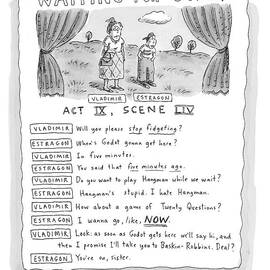 WAITING FOR
VLADIMIR ESTRAGON
ACT IX, SCENE LIV
VLADIMIR Will you please stop fidgeting?
ESTRAGON When's Godot gonna get here?
VLADIMIR In five minutes.
ESTRAGON You said that five minutes ago.
VLADIMIR Do you want to play Hangman while we wait?
ESTRAGON Hangman's stupid. I hate Hangman.
VLADIMIR How about a game of Twenty Questions?
ESTRAGON I wanna go, like, NOW.
VLADIMIR Look: as soon as Godot gets here we'll say hi, and
then I promise I'll take you to Baskin-Robbins. Deal?
ESTRAGON You're on, sister.